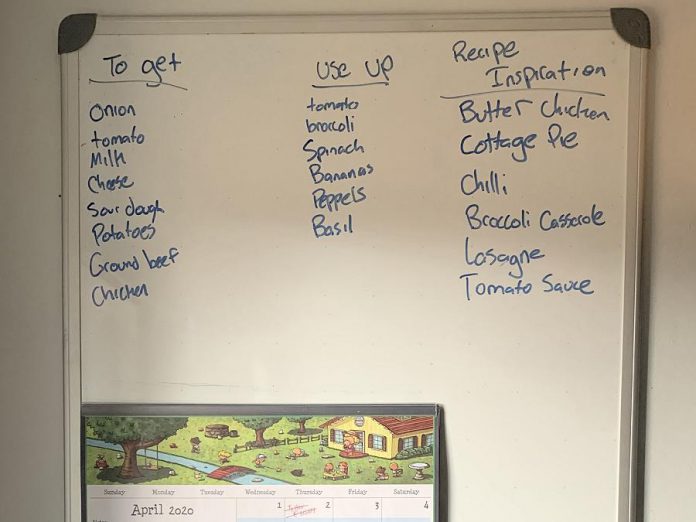 To get
Onion
tomato
Milk
Cheese
Sour dough
Potatoes
Ground beef
Chicken
Use Up
tomato
broccoli
Spinach
Bananas
Peppels
Basil
Recipe
Inspiration
Butter Chicken
Cottage Pie
Chilli
Broccoli Casserole
Lasagne
Tomato Sauce
Sunday Monday Tuesday Wednesday Thursday Friday Saturday
April 2020 1 2 3 4